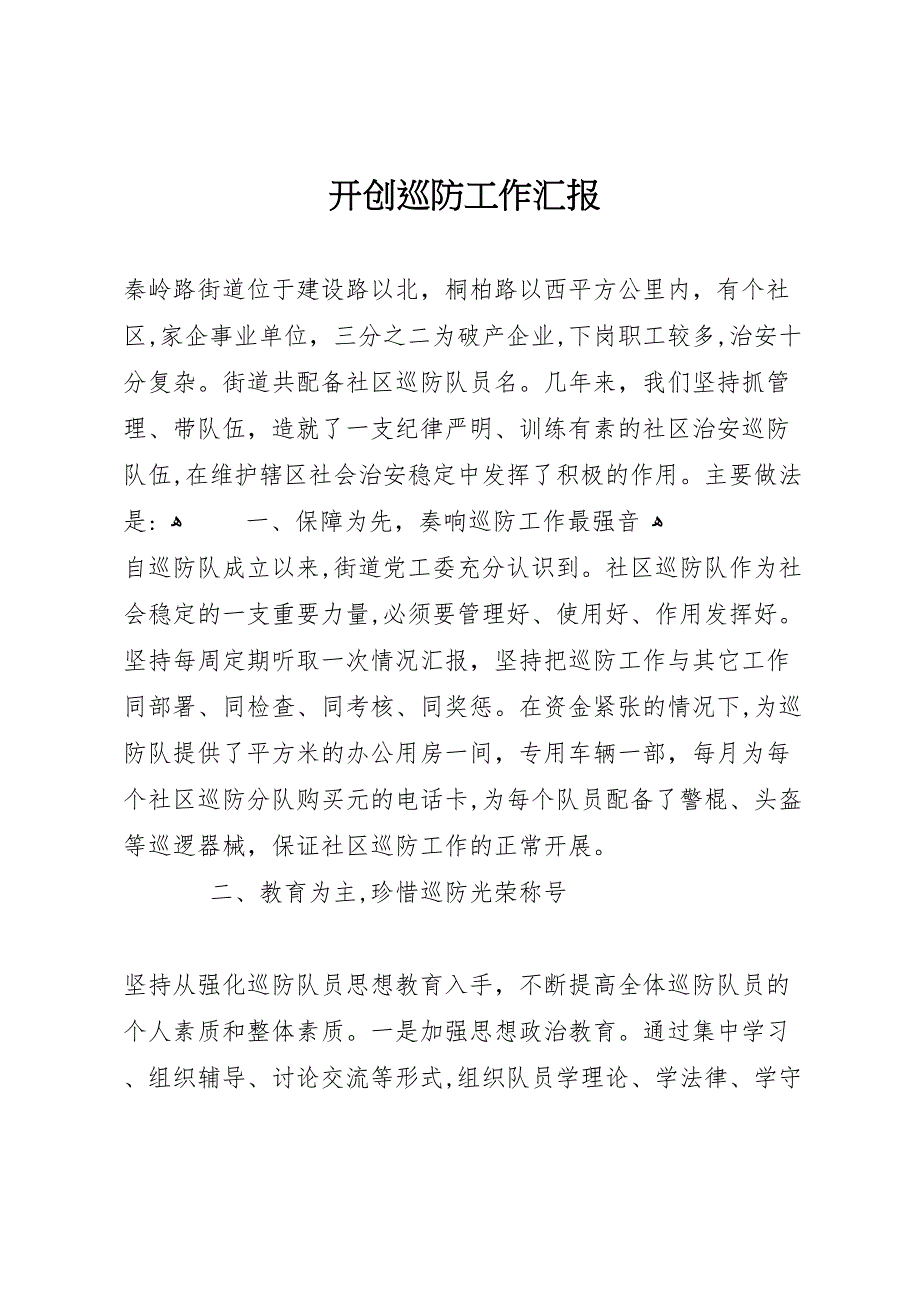 开创巡防工作汇报
秦岭路街道位于建设路以北，桐柏路以西平方公里内，有个社
区,家企事业单位，三分之二为破产企业,下岗职工较多,治安十
分复杂。街道共配备社区巡防队员名。几年来，我们坚持抓管
理、带队伍，造就了一支纪律严明、训练有素的社区治安巡防
队伍,在维护辖区社会治安稳定中发挥了积极的作用。主要做法
是: ﻫ 一、保障为先，奏响巡防工作最强音 ﻫ
自巡防队成立以来,街道党工委充分认识到。社区巡防队作为社
会稳定的一支重要力量,必须要管理好、使用好、作用发挥好。
坚持每周定期听取一次情况汇报，坚持把巡防工作与其它工作
同部署、同检查、同考核、同奖惩。在资金紧张的情况下,为巡
防队提供了平方米的办公用房一间，专用车辆一部，每月为每
个社区巡防分队购买元的电话卡,为每个队员配备了警棍、头盔
等巡逻器械，保证社区巡防工作的正常开展。
二、教育为主,珍惜巡防光荣称号
坚持从强化巡防队员思想教育入手，不断提高全体巡防队员的
个人素质和整体素质。一是加强思想政治教育。通过集中学习
、组织辅导、讨论交流等形式,组织队员学理论、学法律、学守